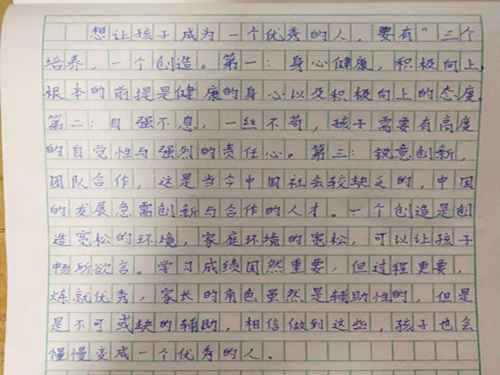 想让孩子成为一个优秀的人，要有"三个
培养，一个创造。第一：身心健康，积极向上，
根本的前提是健康的身心以及积极向上的态度
第二：自强不息，一丝不苟，孩子需要有高度
的自觉性与强烈的责任心。第三：锐意创新，
团队合作，这是当今中国社会较缺乏的，中国
的发展急需创新与合作的人才。一个创造是创
造宽松的环境，家庭环境的宽松，可以让孩子
畅所欲言。学习成绩固然重要，但过程更要，
炼就优秀，家长的角色虽然是辅助性的，但是
是不可或缺的辅助，相信做到这些，孩子也会
慢慢变成一个优秀的人．